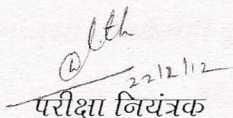 22/2/12
परीक्षा नियंत्रक